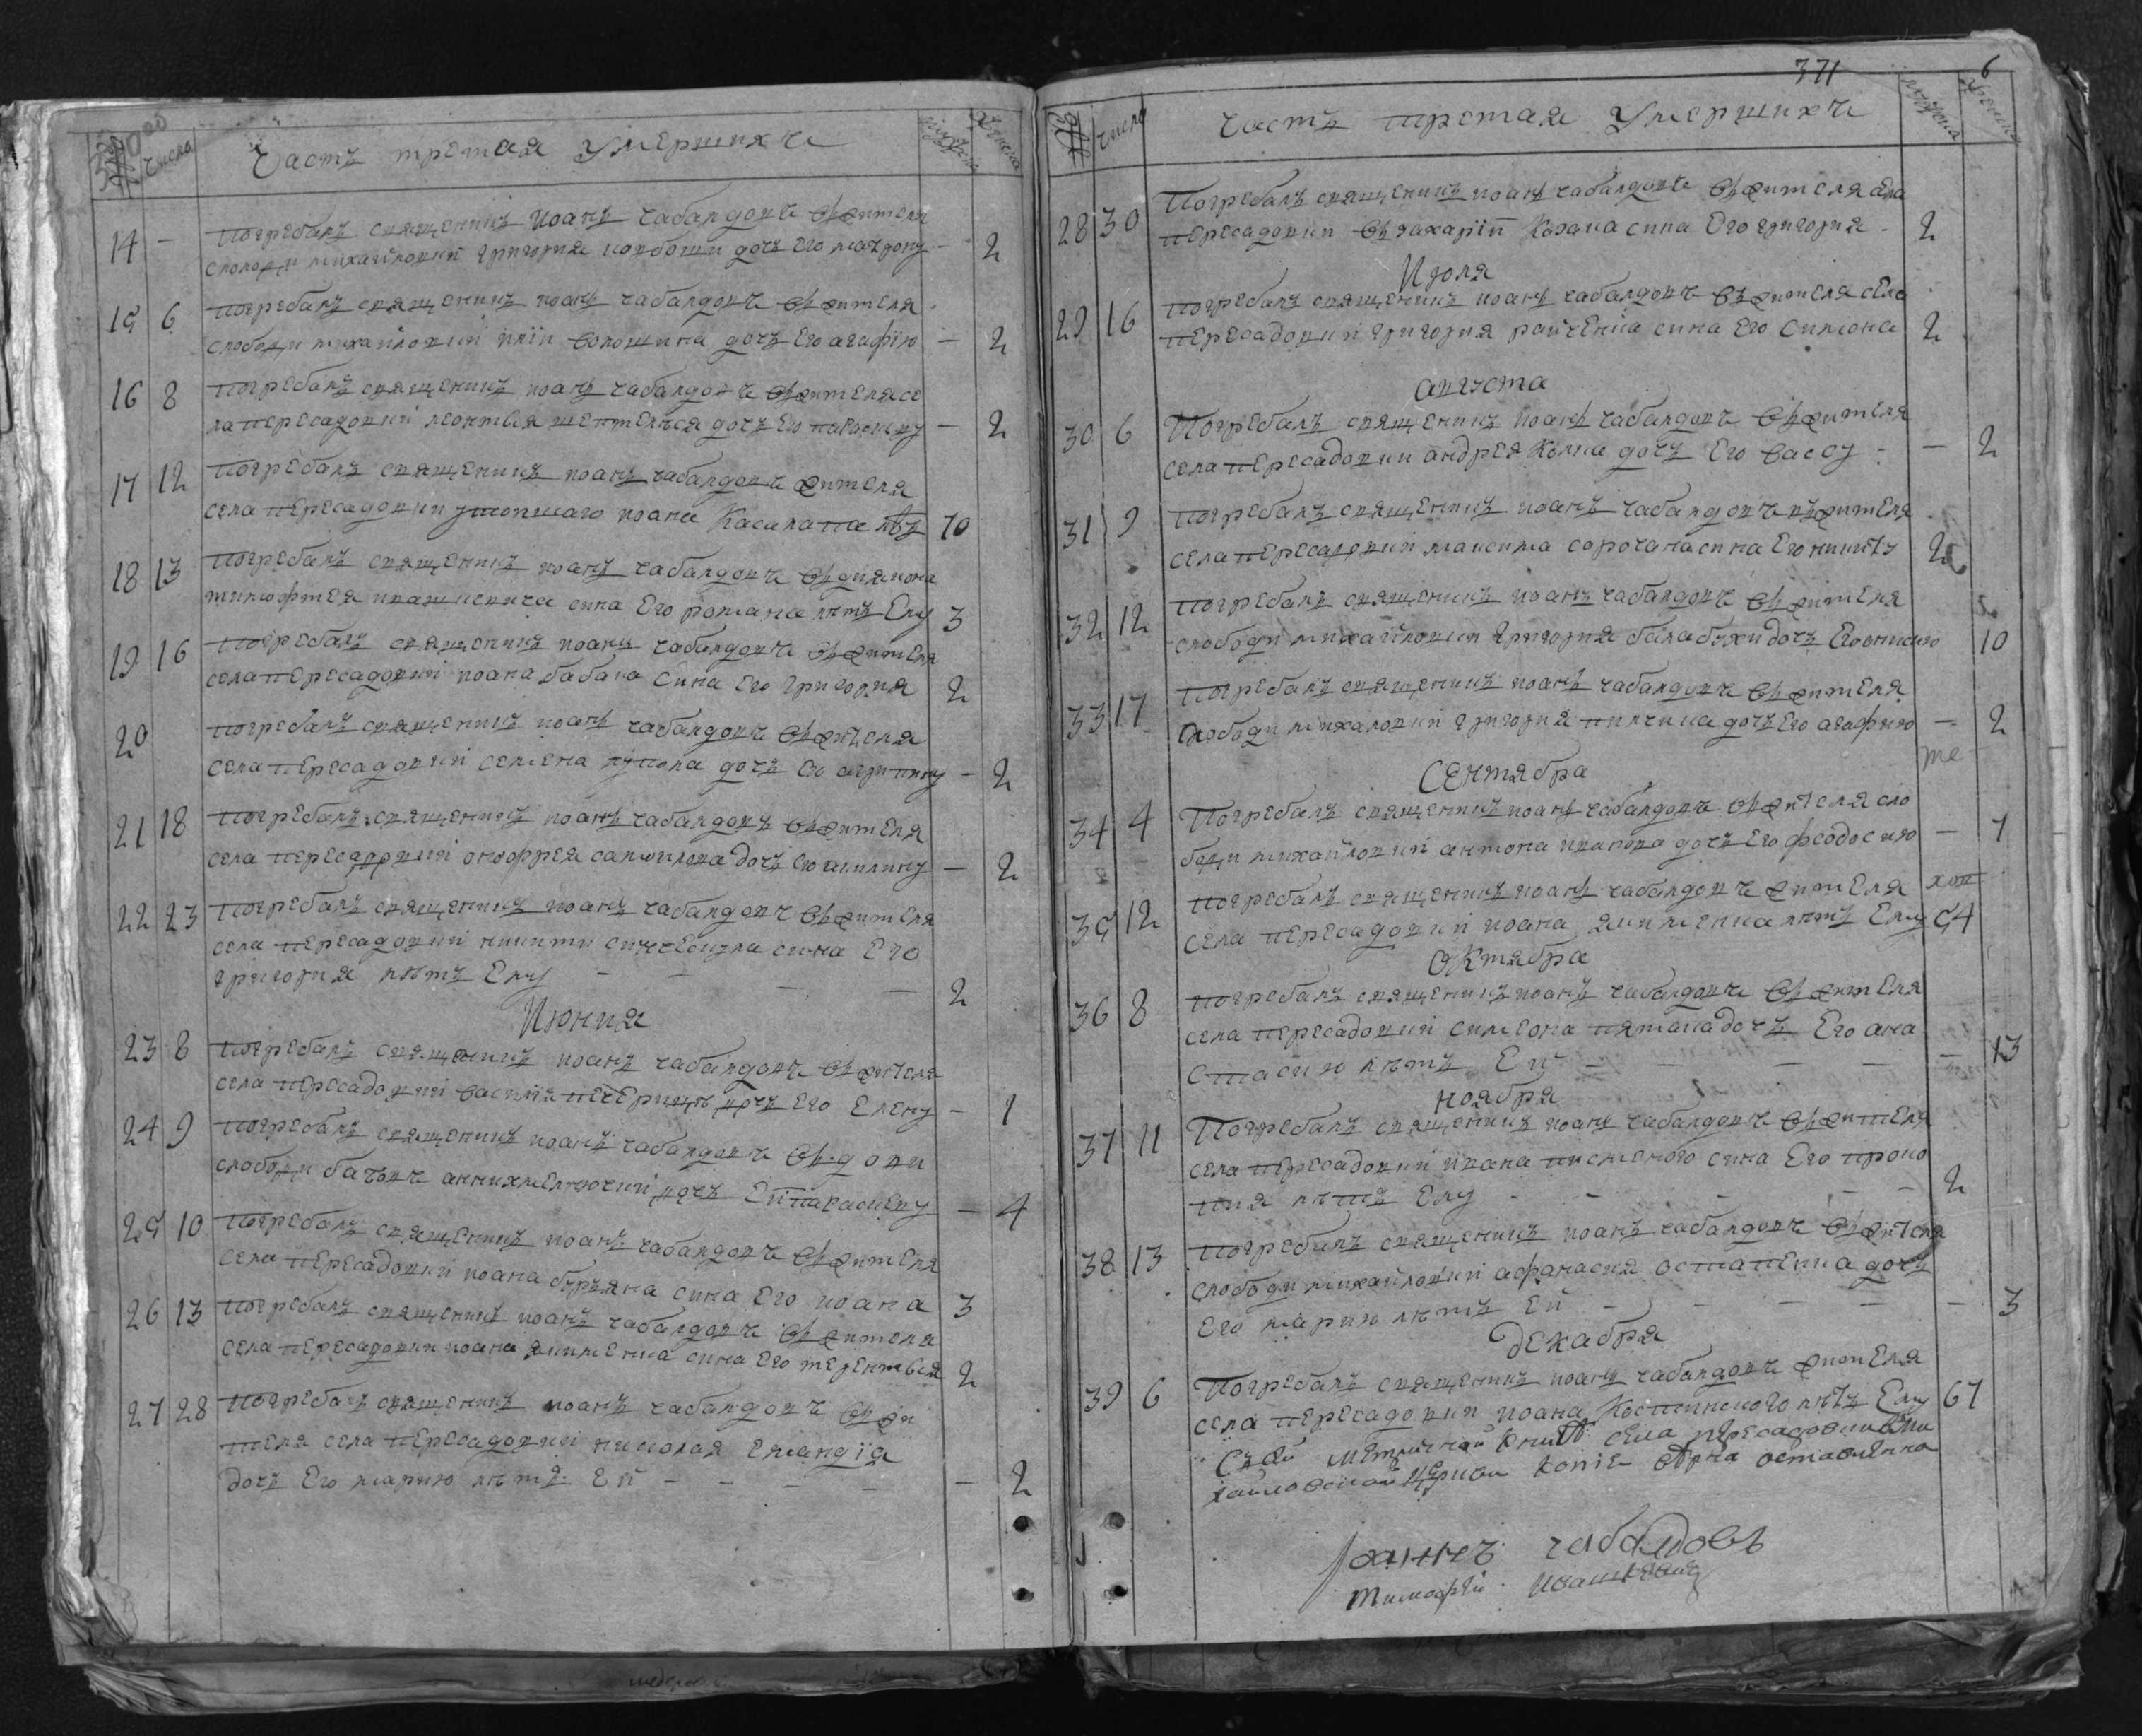 Число Часть третая Умершихъ
14 - Погребалъ священикъ иоанъ чабалдовъ въ жителя
слободи михайловки григория дочъ его матрону - 2
15 6 погребалъ священикъ иоанъ чабалдовъ въ жителя
слободи михайловки иліи волошина дочъ его агафію - 2
16 8 погребалъ священикъ иоанъ чабалдовъ въ жителя се
ла пересадовки леонтья дочъ его параскеву - 2
17 12 погребалъ священикъ иоанъ чабалдовъ жителя
села пересадовки утопшаго иоана Касапа лѣтъ 70
18 13 погребалъ священикъ иоанъ чабалдовъ въ диякона
тимофтея ивашкевича сина Его романа лѣтъ Ему 3
19 16 погребалъ священикъ иоанъ чабалдовъ въ жителя
села пересадовки иоана бабака сина его григория 2
20 погребалъ священикъ иоанъ чабалдовъ въ жителя
села пересадовки семена дочъ его агрипину - 2
21 18 погребалъ священикъ иоанъ чабалдовъ въ жителя
села пересадовки онофрея дочъ его акилину - 2
22 23 погребалъ священикъ иоанъ чабалдовъ въ жителя
села пересадовки никити сина Его
григория лѣтъ Ему - - - 2
Июния
23 8 погребалъ священикъ иоанъ чабалдовъ въ жителя
села пересадовки василия печерици дочъ Его Елену - 1
24 9 погребалъ священикъ иоанъ чабалдовъ въ
слободи дочъ Ей параскеву - 4
25 10 погребалъ священикъ иоанъ чабалдовъ въ жителя
села пересадовки иоана буряна сина Его иоана 3
26 13 погребалъ священикъ иоанъ чабалдовъ въ жителя
села пересадовки иоана якименка сина Его терентья 2
27 28 погребалъ священикъ иоанъ чабалдовъ въ жи
теля села пересадовки николая
дочъ Его марию лѣтъ Ей - - - - 2
371 6
число Часть третая Умершихъ
28 30 Погребалъ священикъ иоанъ чабалдовъ въ жителя села
пересадовки захарій Козака сина Его григория - 2
Июля
29 16 погребалъ священикъ иоанъ чабалдовъ въ жителя села
пересадовки григория райченка сина Его симиона 2
августа
30 6 Погребалъ священикъ иоанъ чабалдовъ въ жителя
села пересадовки андрея дочъ Его вассу - - 2
31 9 погребалъ священикъ иоанъ чабалдовъ въ жителя
села пересадовки максима сорочана сина Его никиту 2
32 12 погребалъ священикъ иоанъ чабалдовъ въ жителя
слободи михайловки григория балабухи дочъ Его 10
33 17 погребалъ священикъ иоанъ чабалдовъ въ жителя
слободи михаловки григория дочъ Его агафию - 2
Сентября
34 4 Погребалъ священикъ иоанъ чабалдовъ въ жителя сло
боди михайловки антона иванова дочъ Его феодосию - 1
35 12 погребалъ священикъ иоанъ чабалдовъ жителя
села пересадовки иоана якименка лѣтъ Ему 54
октября
36 8 погребалъ священикъ иоанъ чабалдовъ въ жителя
села пересадовки симеона пятака дочъ Его ана
стасию лѣтъ Ей - - - - 13
ноября
37 11 Погребалъ священикъ иоанъ чабалдовъ въ жителя
села пересадовки ивана писменого сина Его проко
пия лѣтъ Ему - - - - - 2
38 13 погребалъ священикъ иоанъ чабалдовъ въ жителя
слободи михайловки афанасия остапенка дочъ
Его марию лѣтъ Ей - - - - 3
Декабря
39 6 Погребалъ священикъ иоанъ чабалдовъ жителя
села пересадовки иоана Костинского лѣтъ Ему 67
съ метричной книги села пересадовки Ми
хайловской церкви копіе оставленна
Іоаннъ чабалдовъ
Тимофѣй Ивашкевичъ